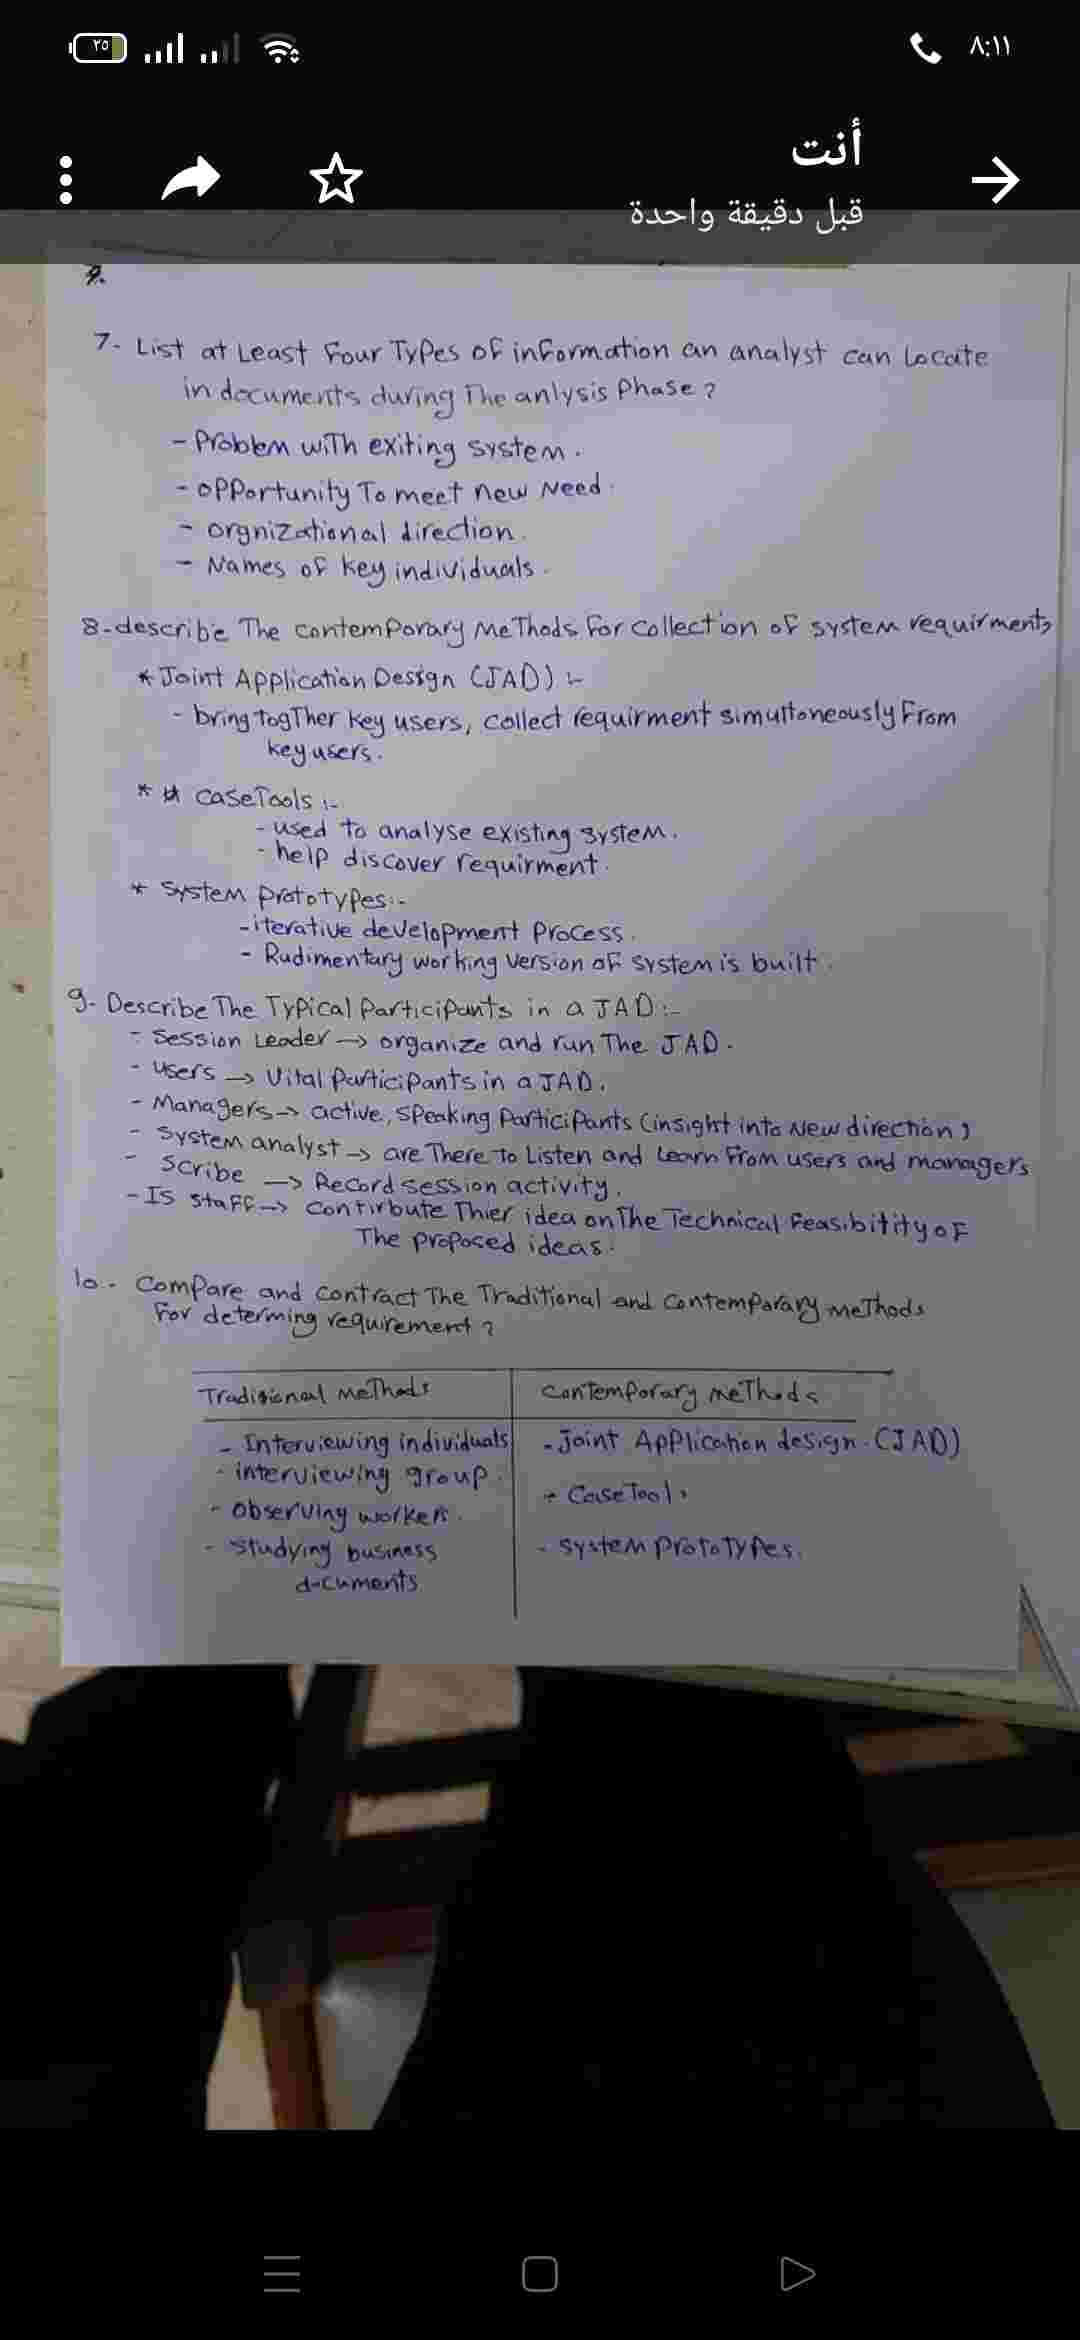 ٢٥
٨:١١
أنت
قبل دقيقة واحدة
7- List at Least Four Types of information an analyst can Locate
in documents during The anlysis Phase ?
- Problem with exiting system.
- opportunity To meet new Need.
- orgnizational direction.
- Names of key individuals.
8- describe The contemporary Methods For collection of system requirments
* Joint Application Design (JAD) :-
- bring togTher key users, collect requirment simultoneously From
key users.
* caseTools :-
- used to analyse existing system.
- help discover requirment.
* System prototypes:-
- iterative development Process.
- Rudimentary working version of system is built.
9- Describe The Typical Participants in a JAD :-
- Session Leader -> organize and run The JAD.
- Users -> Vital Participants in a JAD.
- Managers -> active, speaking Participants (insight into New direction)
- System analyst -> are There To Listen and Learn From users and managers
- Scribe -> Record session activity.
- IS Staff -> Contirbute Thier idea on The Technical Feasibitity of
The proposed ideas.
10- Compare and contract The Traditional and Contemporary meThods
For determing requirement ?
Traditional meThods
Contemporary meThods
- Interviewing individuals
- Joint Application design (JAD)
- interviewing group.
- Case Tool.
- observing workers.
- system proToTypes.
- studying business
documents